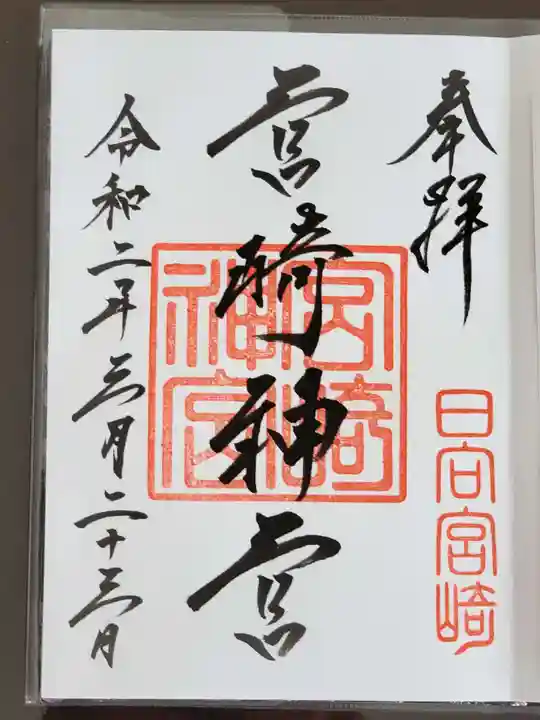 奉拝
日向宮崎
宮崎神宮
宮崎神宮
令和二年三月二十三日